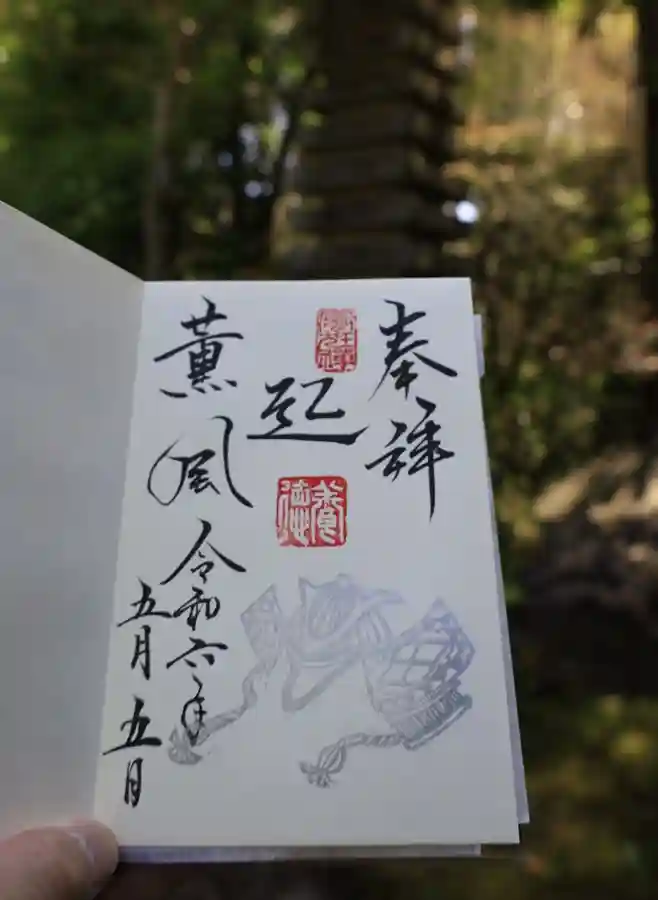 奉拝
起
養徳
薫風
令和六年
五月五日